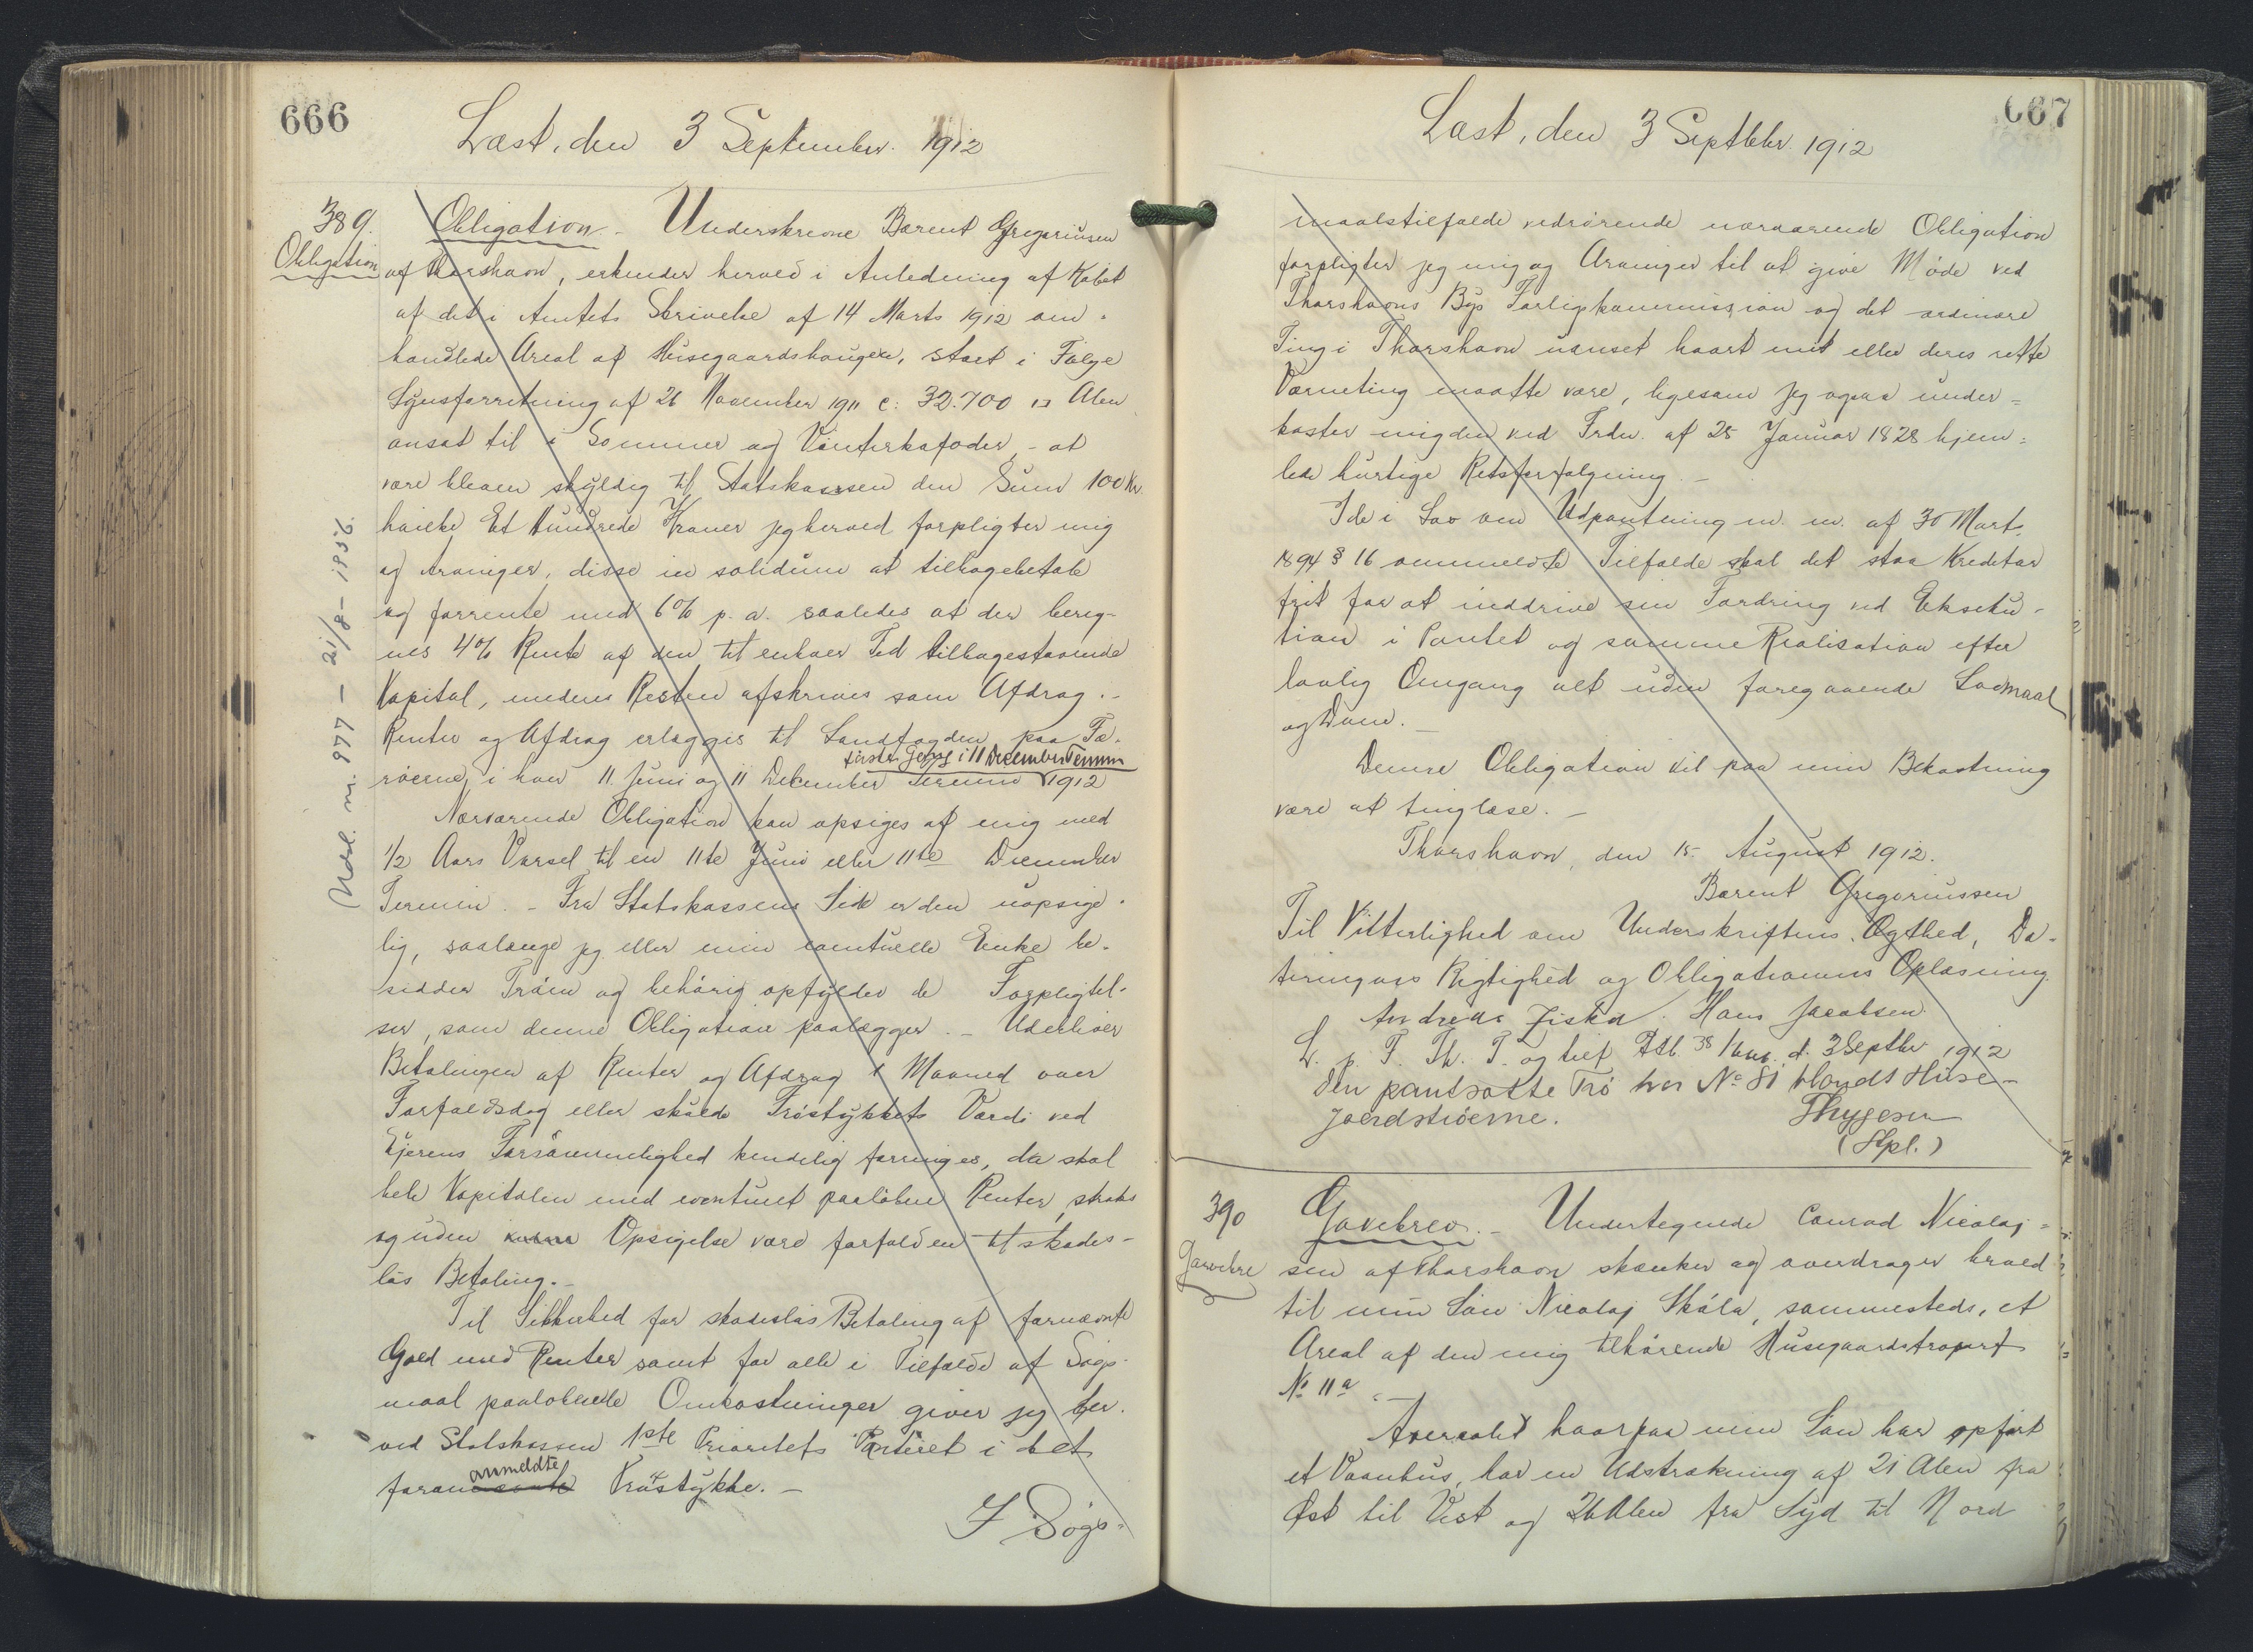 666
Læst, den 3 September. 1912
389.
Obligation
Obligation. - Underskrevne Barent Gregoriussen
af Thorshavn, erkender herved i Anledning af Købet
af det i Amtets Skrivelse af 14 Marts 1912 om-
handlede Areal af Husegaardshaugen, stort i Følge
Synsforretning af 26 November 1911 c: 32.700 □ Alen
ansat til i Sommer og Vinterkofoder, - at
være bleven skyldig til Statskassen den Sum 100 Kr.
hvilke Et Hundrede Kroner jeg herved forpligter mig
og Arvinger, disse in solidum at tilbagebetale
og forrente med 6% p. a. saaledes at der bereg-
nes 4% Rente af den til enhver Tid tilbagestaaende
Kapital, medens Resten afskrives som Afdrag. -
Renter og Afdrag erlægges til Landfogden paa Fæ-
første Gang i 11 December Termin
røerne i hver 11. Juni og 11 December Termin 1912
Nærværende Obligation kan opsiges af mig med
1/2 Aars Varsel til en 11te Juni eller 11te December
Termin. - Fra Statskassens Side er den uopsige-
lig, saalænge jeg eller min eventuelle Enke be-
sidder Trøen og behørig opfylder de Forpligtel-
ser, som denne Obligation paalægger. - Udebliver
Betalingen af Renter og Afdrag 1 Maaned over
Forfaldsdag eller skulde Trøstykkets Værdi ved
Ejerens Forsømmelighed kendelig forringes, da skal
hele Kapitalen med eventuelt paaløbne Renter, straks
og uden Opsigelse være forfalden til skades-
løs Betaling. -
Til Sikkerhed for skadesløs Betaling af fornævnte
Gæld med Renter samt for alle i Tilfælde af Søgs-
maal paaløbende Omkostninger giver jeg her-
ved Statskassen 1ste Prioritets Panteret i det
anmeldte
foran Trøstykke. -
I Søgs-
Aflæst. nr. 977 - 21/8 - 1956.
667
Læst, den 3 Septbr. 1912
maalstilfælde vedrørende nærværende Obligation
forpligter jeg mig og Arvinger til at give Møde ved
Thorshavns Bys Forligskommission og det ordinære
Ting i Thorshavn uanset hvort mit eller deres rette
Værneting maatte være, ligesom jeg ogsaa under-
kaster mig den ved Frdn. af 25 Januar 1828 hjem-
lede hurtige Retsforfølgning. -
I de i Lov om Udpantning m. m. af 30 Marts
1894 § 16 ommeldte Tilfælde skal det staa Kreditor
frit for at inddrive sin Fordring ved Exseku-
tion i Pantet og samme Realisation efter
lovlig Omgang alt uden foregaaende Lovmaal
og Dom. -
Denne Obligation vil paa min Bekostning
være at tinglæse. -
Thorshavn, den 15. August 1912.
Barent Gregoriussen
Til Vitterlighed om Underskriftens Ægthed, Da-
teringens Rigtighed og Obligationens Oplæsning.
Andreas Ziska. Hans Jacobsen.
L. p. T. Th. T. og tief. d. 3 Septbr 1912
Den pantsatte Trø har No 81 blandt Huse-
jaerdstrøerne.
Thygesen
(Stpl.)
390
Gavebre
Gavebrev. - Undertegnede Conrad Nicolaj-
sen af Thorshavn skænker og overdrager herved
til min Søn Nicolaj Skála, sammesteds, et
Areal af den mig tilhørende Husegaardstrøpart
No 11a. -
Arealet hvorpaa min Søn har opført
et Vaanhus, har en Udstrækning af 21 Alen fra
Øst til Vest og 26 Alen fra Syd til Nord